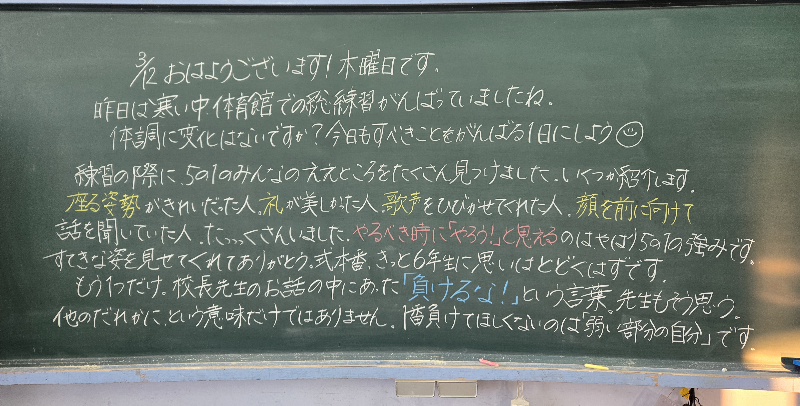 3/12 おはようございます!木曜日です。
昨日は寒い中、体育館での総練習がんばっていましたね。
体調に変化はないですか?今日もすべきことをがんばる1日にしよう☺
練習の際に、5の1のみんなのええところをたくさん見つけました。いくつか紹介します。
座る姿勢がきれいだった人、礼が美しかった人、歌声をひびかせてくれた人、顔を前に向けて
話を聞いていた人、たっっくさんいました。やるべき時に「やろう!」と思えるのはやはり5の1の強みです。
すてきな姿を見せてくれてありがとう。式本番、きっと6年生に思いはとどくはずです。
もう1つだけ。校長先生のお話の中にあった「負けるな!」という言葉。先生もそう思う。
他のだれかに、という意味だけではありません。1番負けてほしくないのは「弱い部分の自分」です